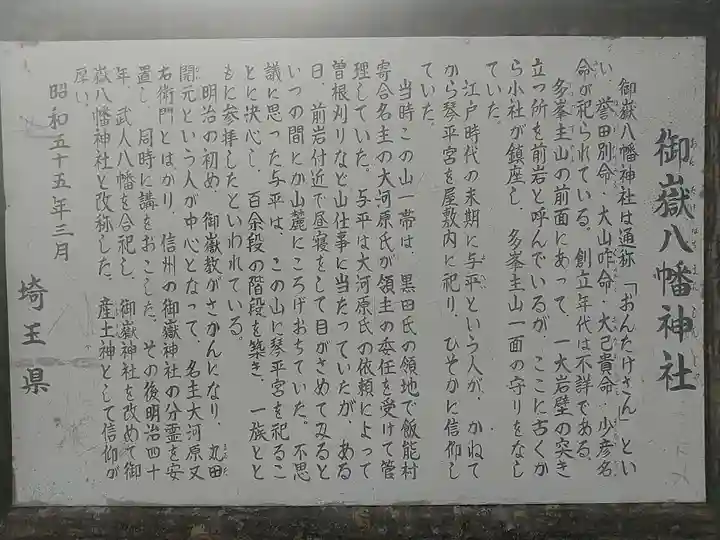 御嶽八幡神社
御嶽八幡神社は通称「おんたけさん」とい
い、誉田別命、大山咋命、大己貴命、少彦名
命が祀られている。創立年代は不詳である。
多峯主山の前面にあって、一大岩壁の突き
立つ所を前岩と呼んでいるが、ここに古くか
ら小社が鎮座し、多峯主山一面の守りをなし
ていた。
江戸時代の末期に与平という人が、かねて
から琴平宮を屋敷内に祀り、ひそかに信仰し
ていた。
当時この山一帯は、黒田氏の領地で飯能村
寄合名主の大河原氏が領主の委任を受けて管
理していた。与平は大河原氏の依頼によって
曽根刈りなど山仕事に当たっていたが、ある
日、前岩付近で昼寝をして目がさめてみると
いつの間にか山麓にころげおちていた。不思
議に思った与平は、この山に琴平宮を祀るこ
とに決心し、百余段の階段を築き、一族とと
もに参拝したといわれている。
明治の初め、御嶽教がさかんになり、丸田
開元という人が中心となって、名主大河原又
右衛門とはかり、信州の御嶽神社の分霊を安
置し、同時に講をおこした。その後明治四十
年、武人八幡を合祀し、御嶽神社を改めて御
嶽八幡神社と改称した。産土神として信仰が
厚い。
昭和五十五年三月
埼玉県